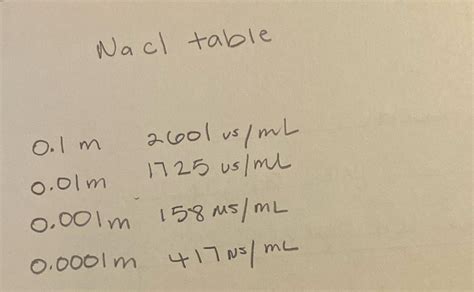 Nacl table
0.1 m 2601 us/mL
0.01m 1725 us/mL
0.001m 158 µs/mL
0.0001m 417 Ns/mL